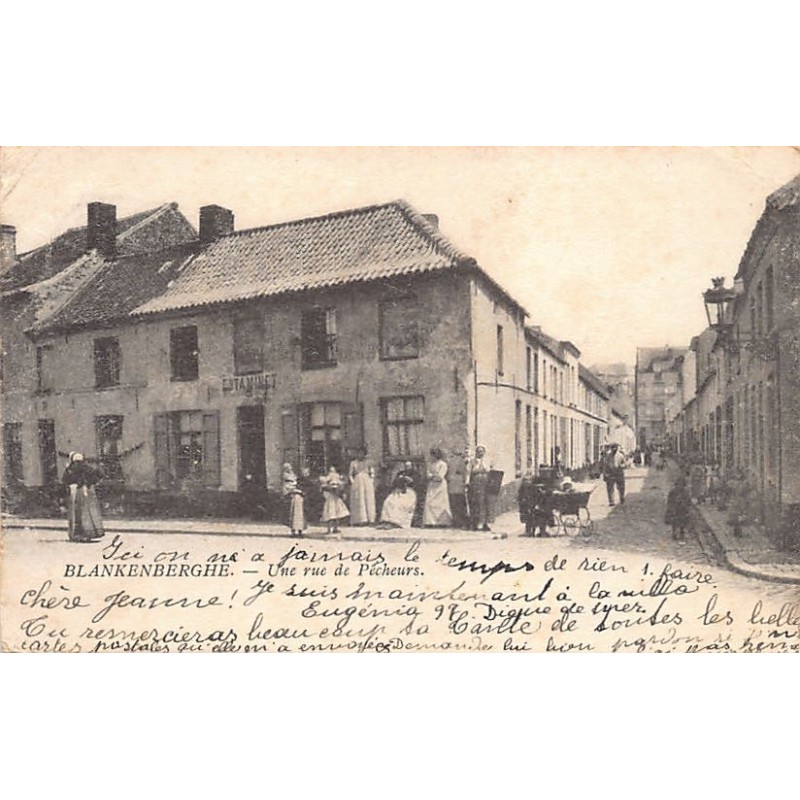 ESTAMINET
Ici on n'a jamais le temps de rien faire
BLANKENBERGHE. — Une rue de Pêcheurs.
chère Jeanne! Je suis maintenant à la villa
Eugénia 97 Digue de mer
Tu remercieras beaucoup ta tante de toutes les belles
cartes postales qu'elle m'a envoyées Demande lui bien pardon si
pas